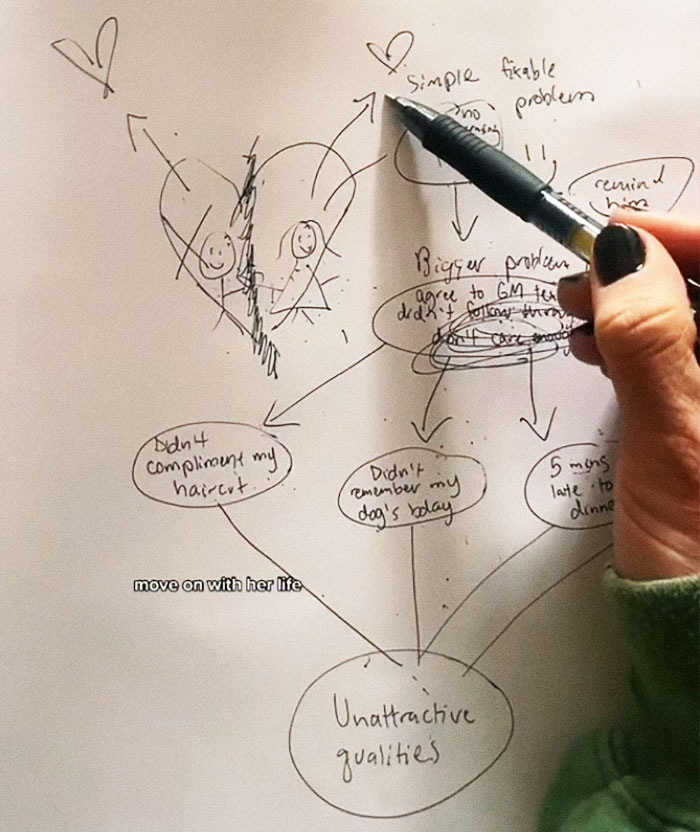 Simple fixable
problem
no
remind
him
Bigger problem
agree to GM
didn't follow through
don't care enough
Didn't
compliment my
haircut
Didn't
remember my
dog's bday
5 mins
late to
move on with her life
Unattractive
qualities